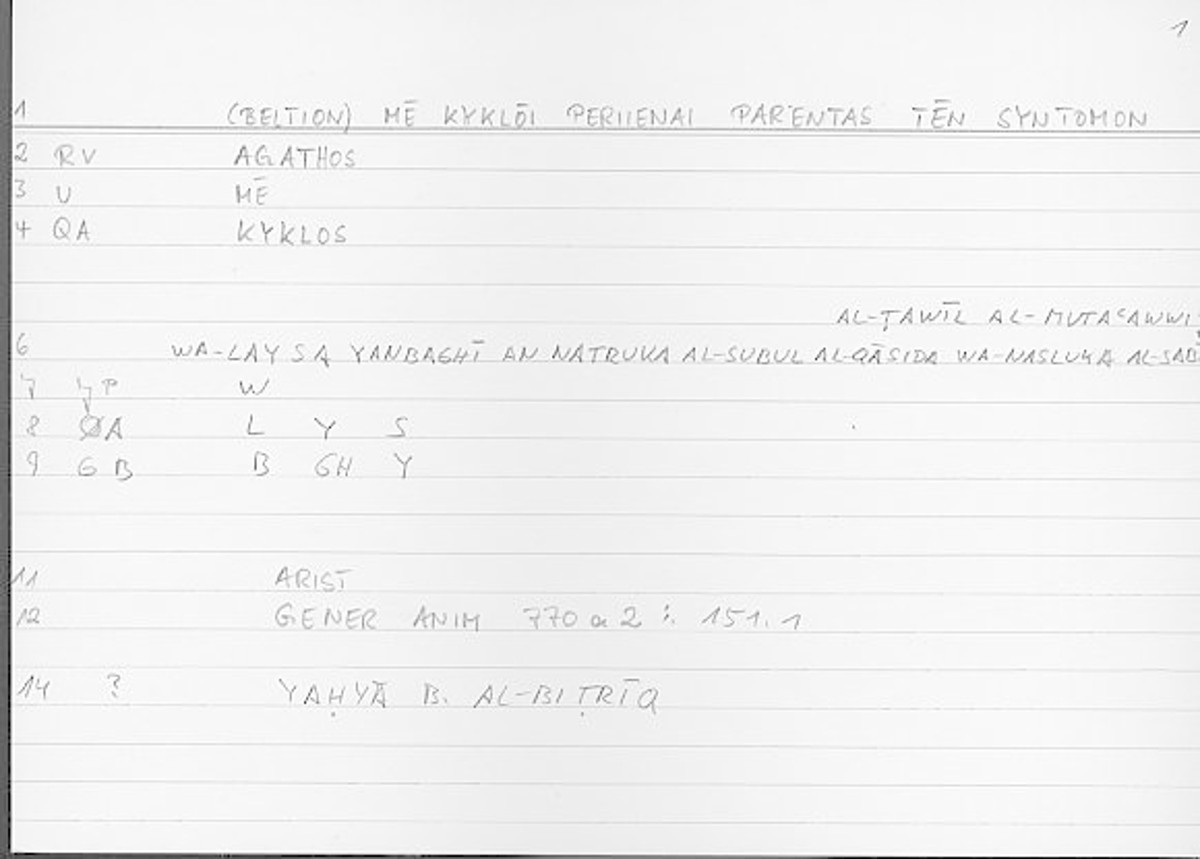 1
1 (BELTION) MĒ KYKLŌI PERIIENAI PARENTAS TĒN SYNTOMON
2 RV AGATHOS
3 U MĒ
4 QA KYKLOS
AL-ṬAWĪL AL-MUTAʿAWWI
6 WA-LAYSA YANBAGHĪ AN NATRUKA AL-SUBUL AL-QĀSIDA WA-NASLUKA AL-SAB
7 P W
8 A L Y S
9 G B B GH Y
11 ARIST
12 GENER ANIM 770 a 2 ⁒ 151.1
14 ? YAḤYĀ B. AL-BIṬRĪQ